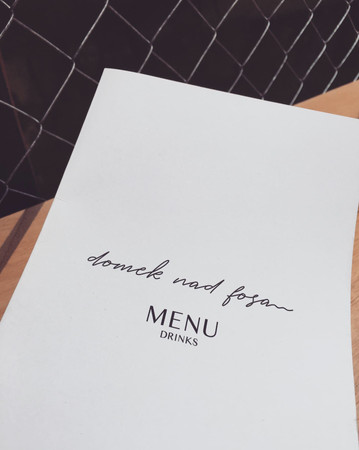 domek nad fosą
MENU
DRINKS